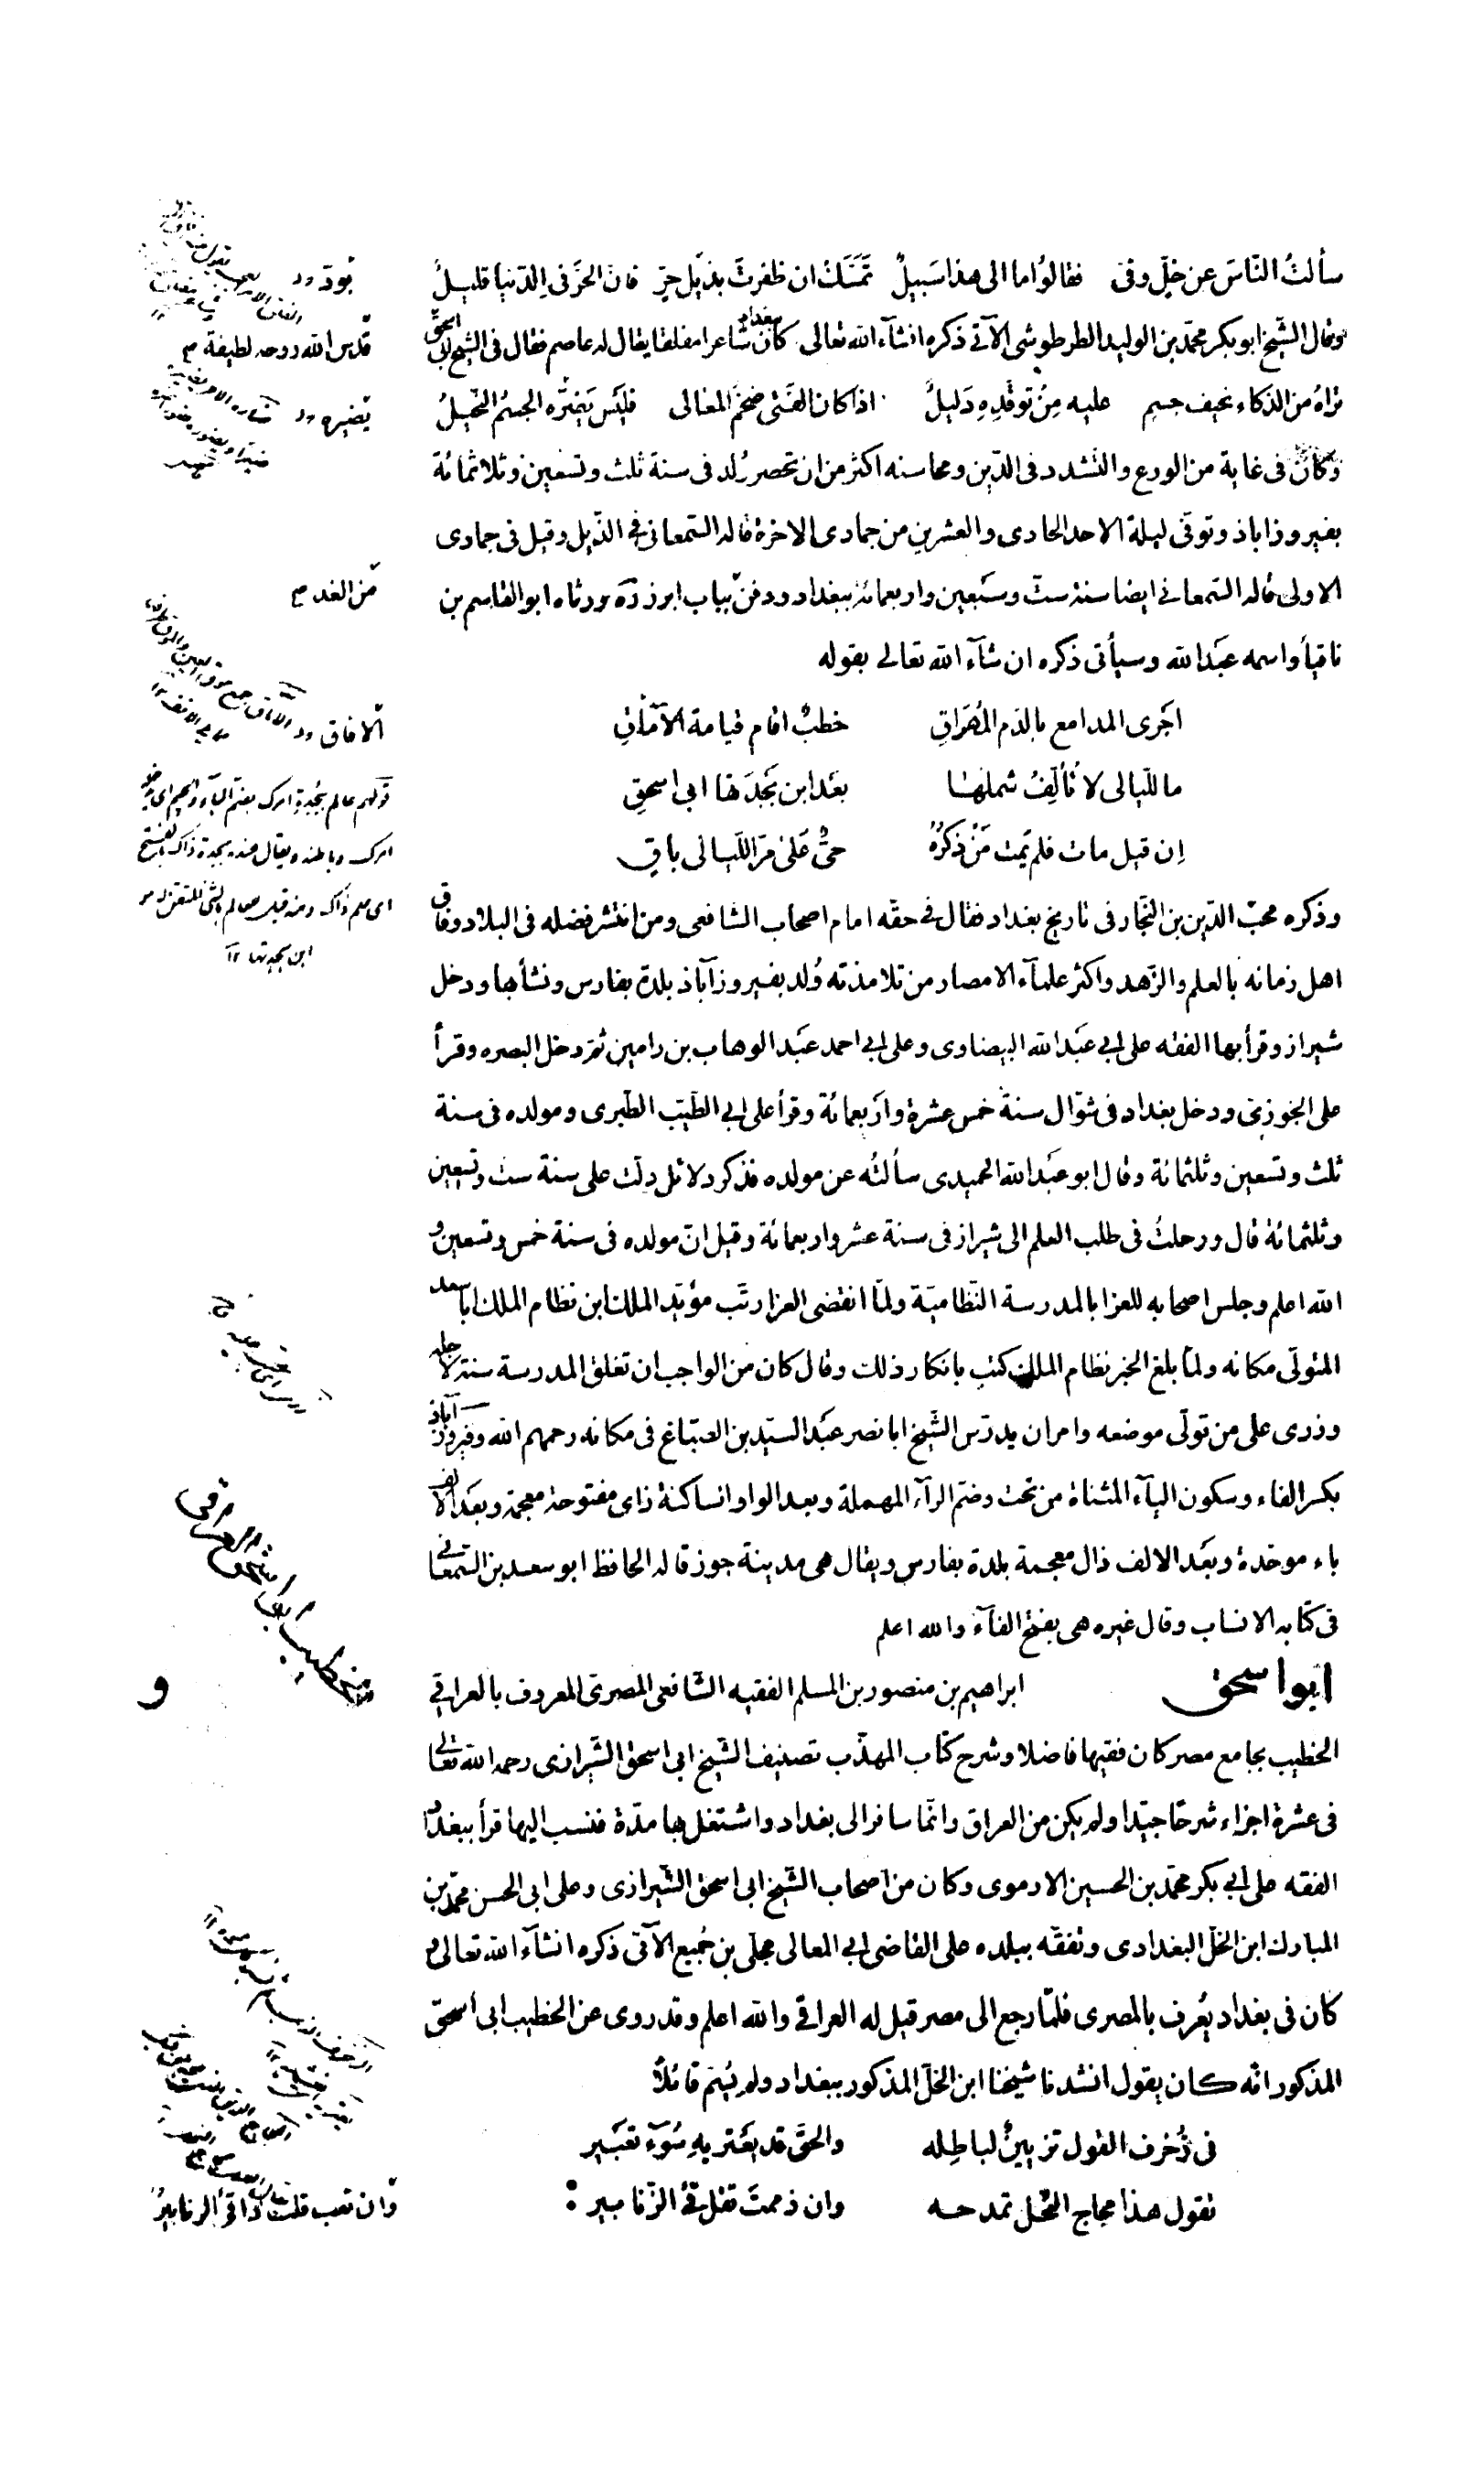 سألتُ النّاسَ عن خِلٍّ وفىّ فقالوُا ما الى هذا سَبيلٌ تمسَّك ان ظفرتَ بذَيْل حرٍّ فانّ الحرّ فى الدّنيا قليلُ
وقال الشّيخ ابو بكر محمّد بن الوليد الطرطوشى الآتى ذكره انشآء الله تعالى كان ببغداد شاعرا مفلقا يقال له عاصم فقال فى الشيخ ابى اسحقّ
تراهُ من الذكاء نحيف جسمٍ عليه مِن توقّدِه دَليلُ اذا كان الفتى ضخم المعالى فليَس يَضرّه الجسمُ النحّيلُ
وكان فى غاية من الورع والتّشدد فى الدّين ومحاسنه اكثر من ان تحصر وُلد فى سنة ثلث وتسعين وثلاثمائة
بفيروزاباذ وتوفّى ليلة الاحد الحادى والعشرين من جمادى الاخرة قاله السّمعانى فى الذّيل وقيل فى جمادى
الاولى قاله السّمعانى ايضا سنة ستّ وسَبعين واربعمائة ببغداد ودفنّ بباب ابرز رَه ورثاه ابو القاسم بن
ناقيأ واسمه عبَد الله وسيأتى ذكره ان شآء الله تعالى بقوله
اجَرى المدامع بالدّم المُهَراقِ خطبٌ اقام قيامة الآماقِ
ما للّيالى لا تُألّفِ شملهَا بعَد ابن بَجْدَتها ابى اسحقِ
اِن قيل مات فلم يَمت مَنْ ذكرُهُ حىٌّ عَلىَ مرّ اللّيالى باقٍ
وذكره محبّ الدّين بن النّجّار فى تاريخ بغداد فقال فى حقّه امام اصحاب الشافعى ومن انتشر فضله فى البلاد وفاق
اهل زمانه بالعلم والزّهد واكثر علمآء الامصار من تلامذته وُلد بفيروزآباذ بلدة بفارس ونشأ بها ودخل
شيراز وقرأ بها الفقه على ابى عبَد الله البيضاوى وعلى ابى احمد عبَد الوهاب بن رامين ثمّ دخل البصره وقرأ
على الخوزىّ ودخل بغداد فى شوّال سنة خمس عشرة وارَبعمائة وقرأ على ابى الطّيّب الطّبرى ومولده فى سنة
ثلث وتسعين وثلثمائة وقال ابو عبَد الله الحميدى سألتُه عن مولده فذكر دلائل دلّت على سنة ست وتسعين
وثلثمائة قال ورحلتُ فى طلب العلم الى شيراز فى سنة عشر واربعمائة وقيل انّ مولده فى سنة خمس وتسعين و
الله اعلم وجلس اصحابه للعزا بالمدرسة النّظاميّة ولمّا انقضى العزا رتّب مؤيّد الملك ابن نظام الملك ابا سعد
المتولّى مكانه ولمّا بلغ الخبر نظام الملك كتب بانكار ذلك وقال كان من الواجب ان تغلق المدرسة سنة لاجله
وزرى على من تولّى موضعه وامر ان يدرّس الشّيخ ابا نصر عبَد السيّد بن الصّبّاغ فى مكانه رحمهم الله وفيروزآباذ
بكسر الفاء وسكون اليآء المثناة من تحت وضمّ الرآء المهملة وبعد الواو انساكنة زاى مفتوحة معجمة وبعَد الالف
باء موحّدة وبعَد الالف ذال معجمة بلدة بفارس ويقال هى مدينة جوز قاله الحافظ ابو سعد بن السّمعانى
فى كتابه الانساب وقال غيره هى بفتح الفآء والله اعلم
ابو اسحق ابراهيم بن منصور بن المسلم الفقيه الشّافعى المصرىّ المعروف بالعراقى
الخطيب بجامع مصر كان فقيها فاضلا وشرح كتاب المهذّب تصنيف الشّيخ ابى اسحق الشّيرازى رحمه الله تعالى
فى عشرة اجزاء شرحًا جيّدا ولم يكن من العراق وانّما سافر الى بغداد واشتغل بها مدّة فنسب اليها قرأ ببغداد
الفقه على ابى بكر محمّد بن الحسين الارموى وكان من اصحاب الشّيخ ابى اسحق الشّيرازى وعلى ابى الحسن محمّد بن
المبارك ابن الخلّ البغدادى وتفقّه ببلده على القاضى ابى المعالى مجلّى بن جُميع الآتى ذكره انشآء الله تعالى و
كان فى بغداد يُعرف بالمصرى فلمّا رجع الى مصر قيل له العراقى والله اعلم وقد روى عن الخطيب ابى اسحقّ
المذكور انّه كان يقول انشدنا شيخنا ابن الخلّ المذكور ببغداد ولم يُسَم قائلاً
فى زُخرف القول تزيينٌ لباطِله والحقّ قد يعَتريهِ سُوء تعبَير
تقول هذا مجاج النّحل تمدحه وان ذممتَ تقل قئُ الزّنابير
بُودّ
قدّس الله روحه لطيفة م
يَضيره
منَ الغد م
الافاق
قولهم عالم بِبُجْدَةِ امرك بضمّ البآء والجيم اى
امرك وباطنه ويقال عنده بجدة ذاك بفتح
اى علم ذاك ومنه قيل للعالم بالشئ المتقن له هو
ابن بجدتها
الخطيب ابو اسحق العراقى
و
وان تعب قلت ذا قئُ الزنابيرُ